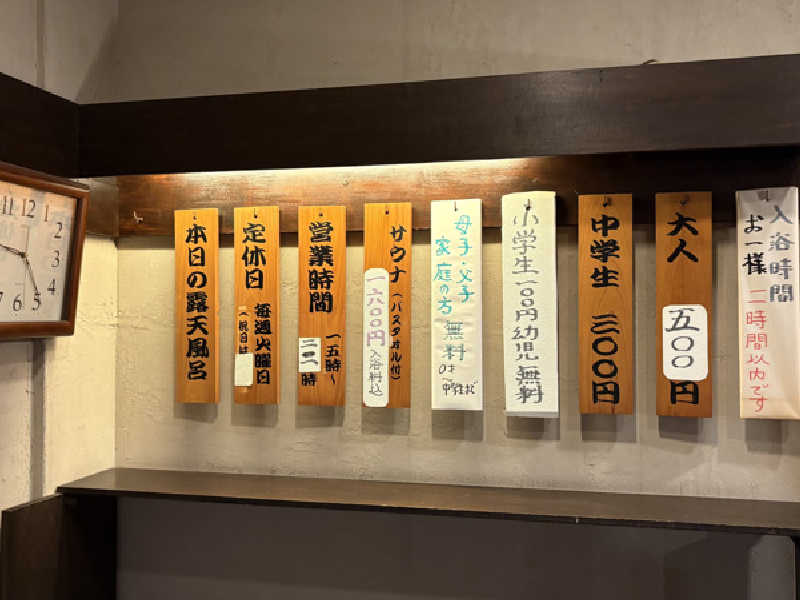 入浴時間
お一様
二時間以内です
大人
五〇〇円
中学生
三〇〇円
小学生一〇〇円幼児無料
母子・父子
家庭の方無料
サウナ(バスタオル付)
入浴料込
営業時間
一五時〜
時
定休日
毎週火曜日
本日の露天風呂
11 12 1
2
3
4
5
6
7